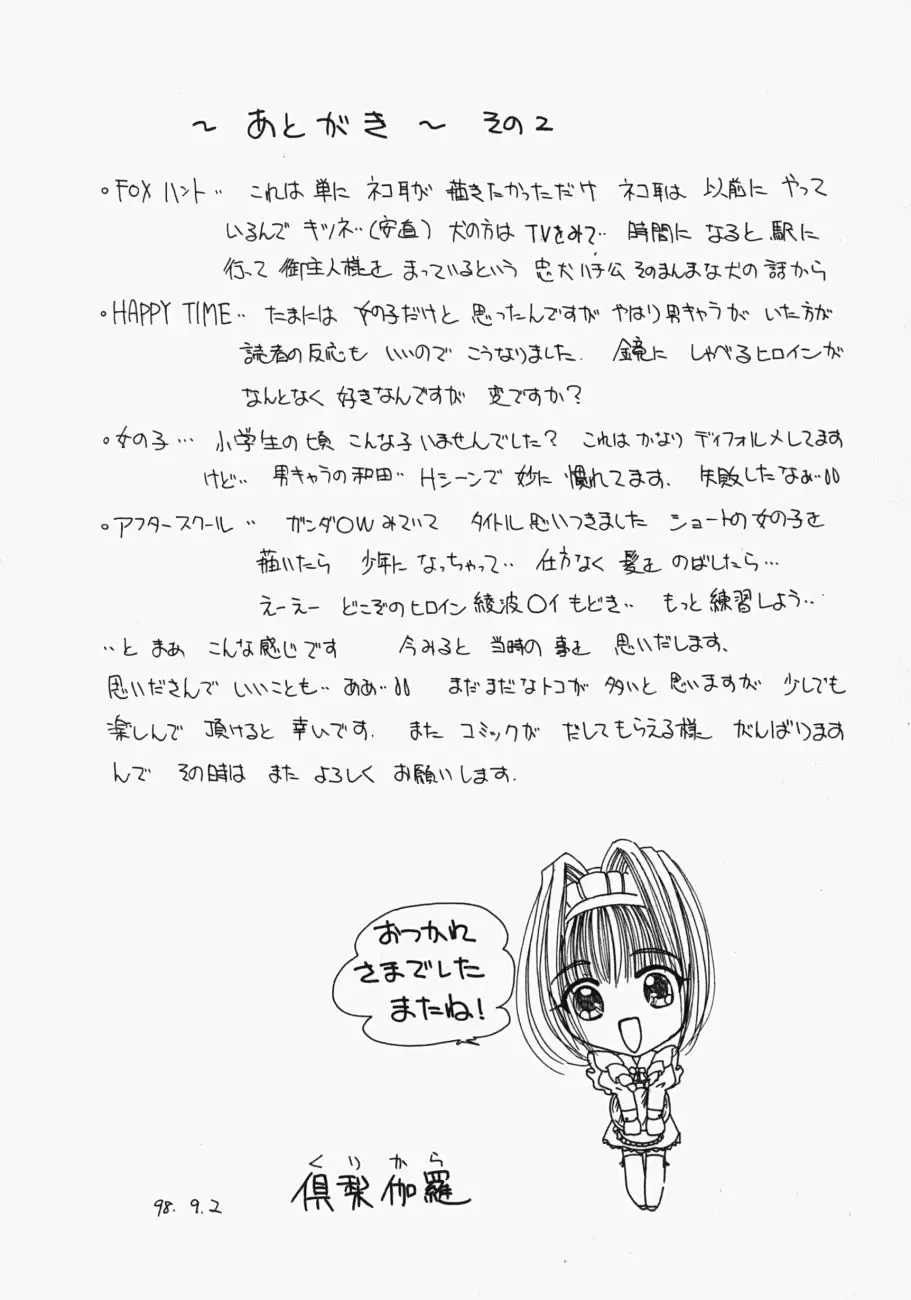 ～ あとがき ～ その2
・FOXハント‥ これは 単に ネコ耳が 描きたかっただけ ネコ耳は 以前に やって
いるんで キツネ‥(安直) 犬の方は TVをみて‥ 時間に なると 駅に
行って 御主人様を まっているという 忠犬ハチ公 そのまんまな犬の話から
・HAPPY TIME‥ たまには 女の子だけと 思ったんですが やはり男キャラが いた方が
読者の反応も いいので こうなりました. 鏡に しゃべるヒロインが
なんとなく 好きなんですが 変ですか?
・女の子… 小学生の頃 こんな子いませんでした? これは かなり ディフォルメしてます
けど‥ 男キャラの和田‥ Hシーンで 妙に 慣れてます. 失敗したなぁ‥
・アフタースクール ‥ ガンダ○W みていて タイトル思いつきました ショートの女の子を
描いたら 少年に なっちゃって‥ 仕方なく 髪を のばしたら…
えーえー どこぞのヒロイン 綾波○イもどき‥ もっと 練習しよう‥
‥と まぁ こんな感じです 今みると 当時の 事を 思いだします、
思いださんで いいことも‥ ああ‥ まだまだなトコが 多いと 思いますが 少しでも
楽しんで 頂けると 幸いです. また コミックが だしてもらえる様 がんばります
んで その時は また よろしく お願いします.
おつかれ
さまでした
またね!
くりから
倶梨伽羅
98. 9.2